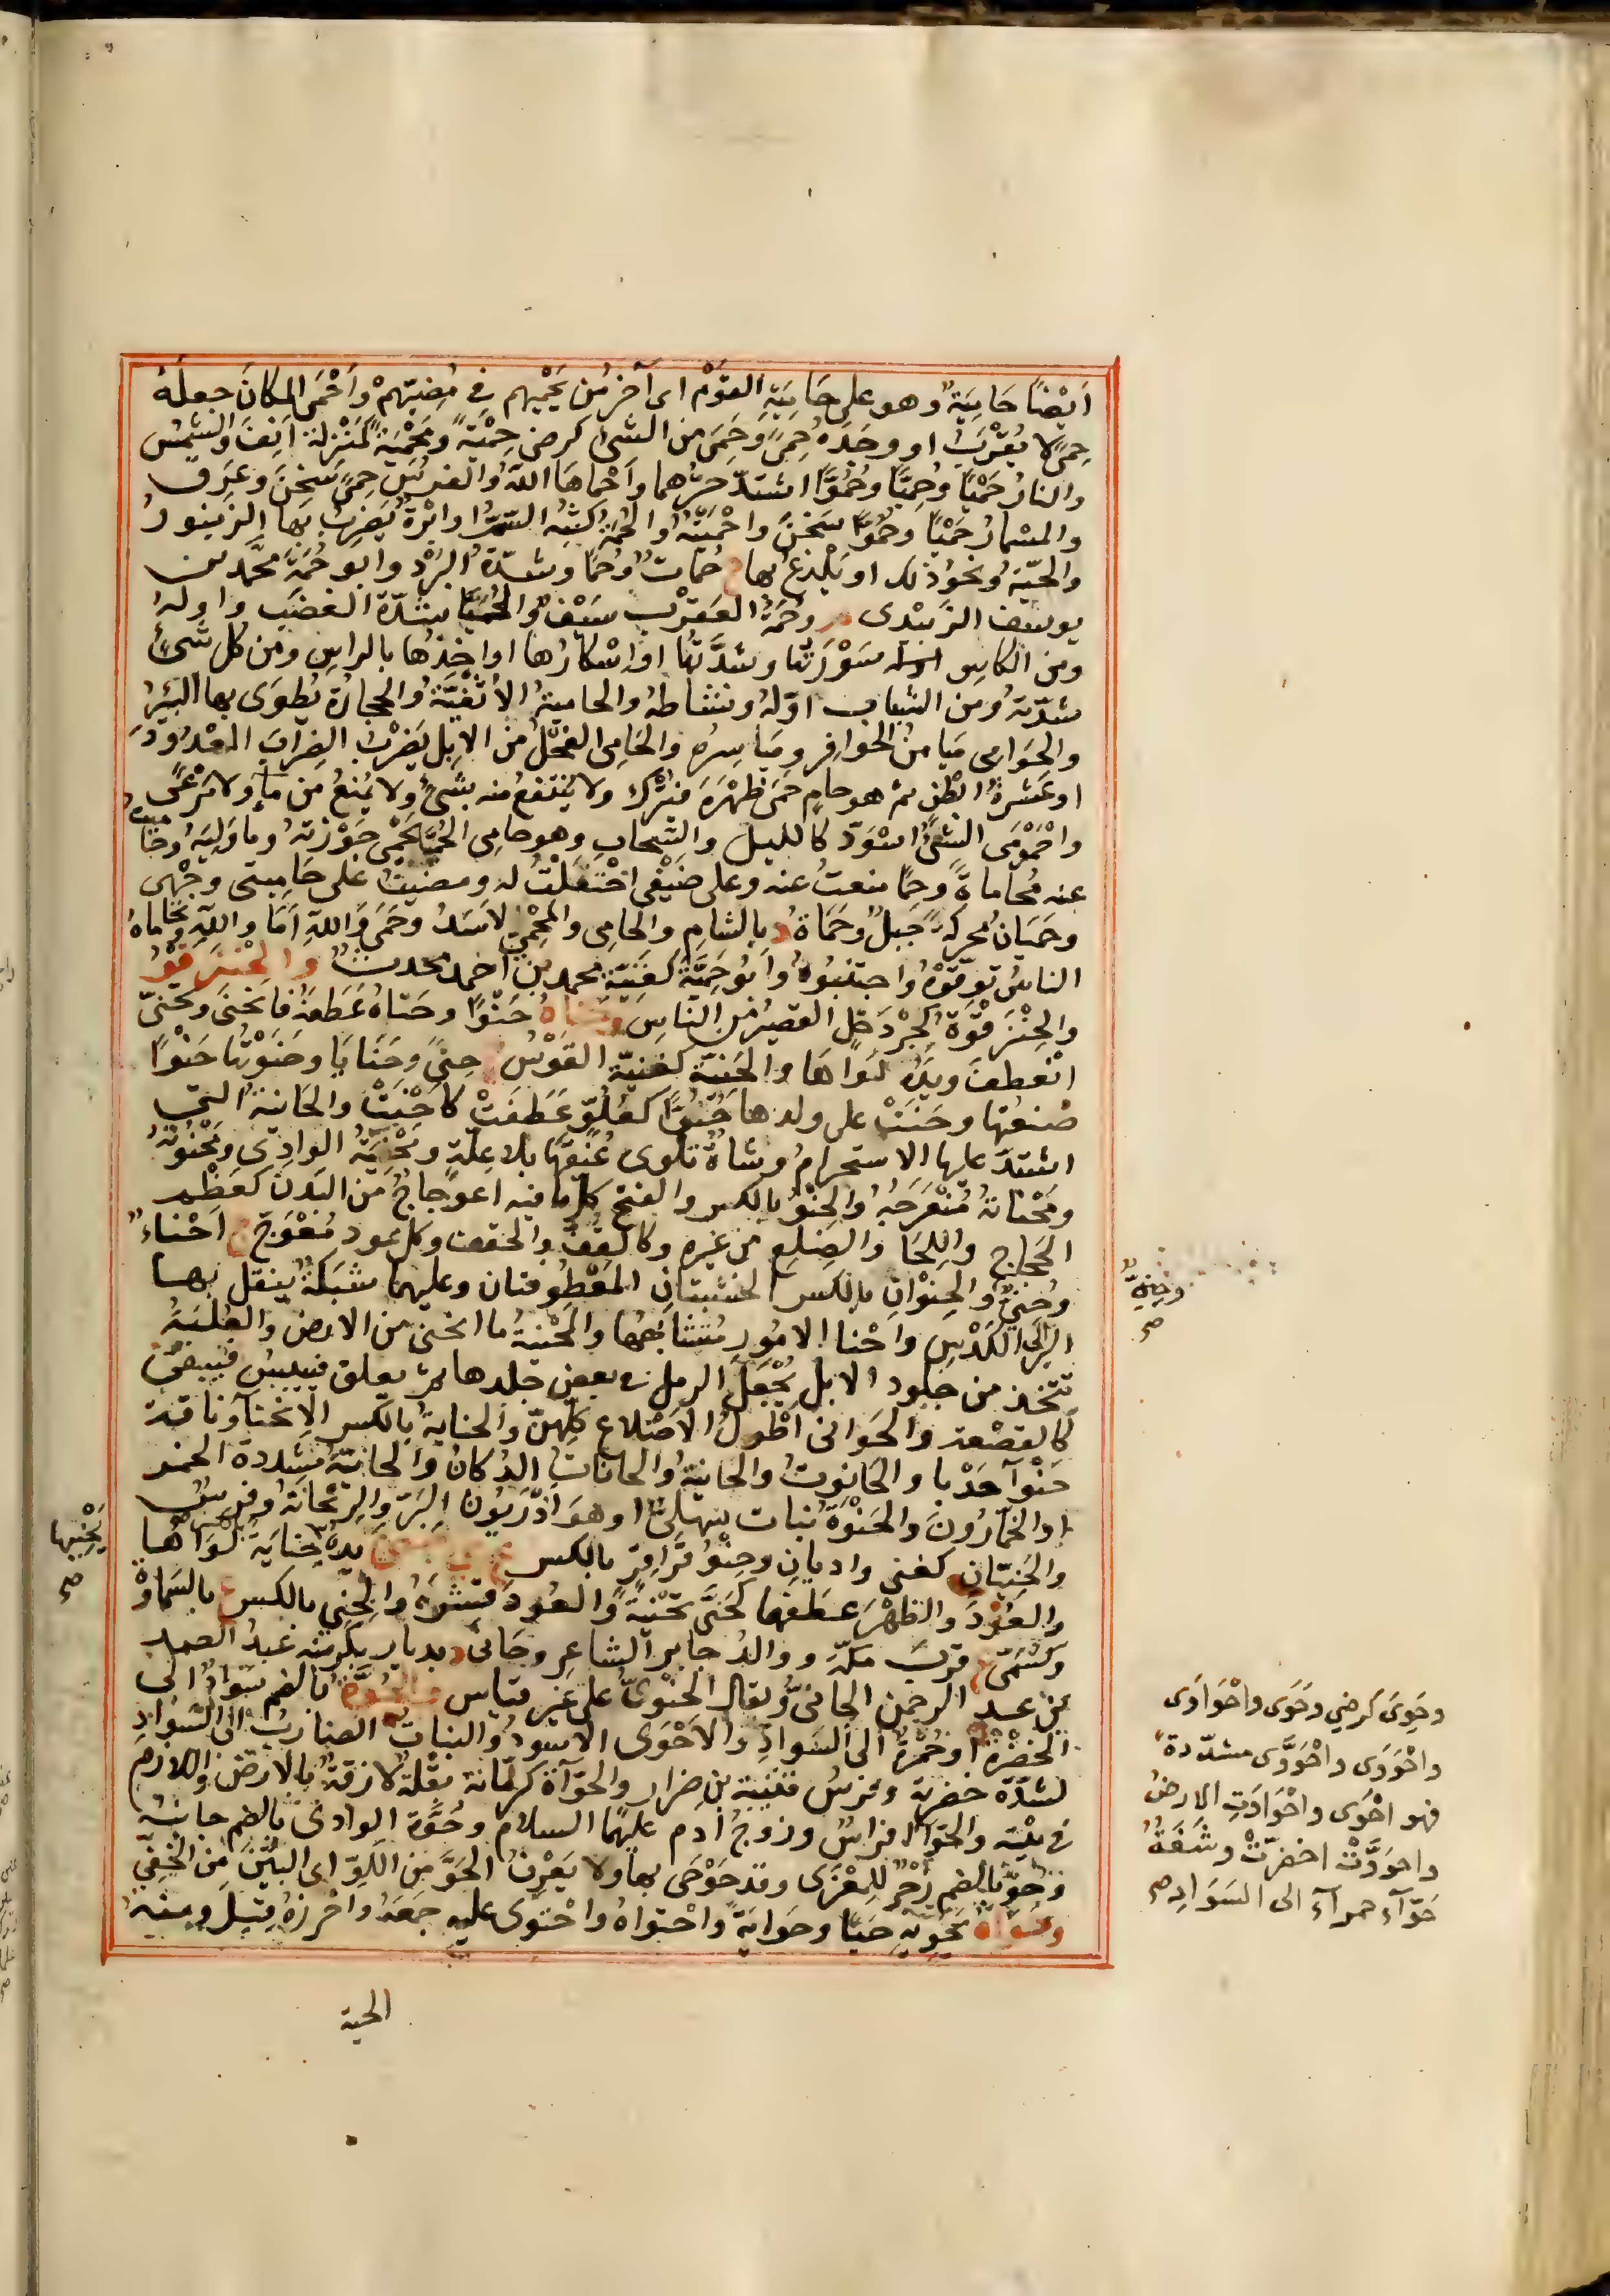 اَيْضًا حَامِيَةٌ وهو على حَامِيَةِ القَوْم اى آخر مَن يَحْمِيهم فى مُضِيّهِمْ وَاَحْمَى المكانَ جعلهُ
حِمًى لا يُقْرَبُ او وجَدَهُ حِمًى وَحَمِىَ من الشئ كرضى حَمِيَّةً ومَحْمِيَةً كمَنْزِلَة اَنِفَ والشمسُ
والنارُ حَمْيًا وحُمِيًّا وحُمُوًّا اشتدّ حرّهما وَاَحْماهَا اللهُ والفرسُ حِمًى سَخُنَ وعَرِقَ
والمسْمارُ حَمْيًا وحُمُوًّا سَخُنَ واَحْمَيْتُهُ والحُمَةُ كثُبَة السّمُّ او الابْرَةُ يَضرِبُ بها الزنبورُ
والحَيّةُ ونحوُ ذلك او يَلْدغُ بها ج حُماتٌ وحُمًا وشدّةُ البَرْد وابو حُمَةَ محمّد بن
يوسُف الزَبِيدى وحُمَةُ العَقرَب سَيْفٌ والحُمَيَّا شدّة الغضَب واولهُ
ومن الكاس سَوْرَتُها وشدَّتُها او اِسْكارُها او اَخْذُها بالراسِ ومن كل شئ
شدّتهُ ومن الشباب اوّلهُ ونشاطهُ والحاميةُ الاُثْفِيَّةُ والحجارةُ تُطوَى بها البئرُ
والحَوامى مَيامنُ الحوافر ومَياسِرُه والحَامى الفَحْلُ من الابِل يَضرْبُ الضِرابَ المعْدُودَ
او عَشرةَ ابْطُنٍ ثم هو حامٍ حَمَى ظَهْرَهُ فيُترَك ولا يُنتفعُ منه بشئ ولا يُمْنَعُ من ماءٍ ولا مَرْعًى
واحْمَوْمَى الشئُ اسْوَدّ كالليل والسَحاب وهو حامى الحُمَيّا يَحْمِى حَوْزتهُ وما وَلِيَهُ وحامَيْتُ
عنه مُحاماةً وحِمًا منعتُ عنه وعلى ضَيْفى احْتَفَلْتُ له ومضيتُ على حَامِيتى وجْهى
وحَمَيَان محرّكة جَبلٌ وحَمَاةُ د بالشامِ والحامى والمَحْمِىّ الاسَدُ وحَمَى وَاللهِ اَمَا واللهِ وتَحاماهُ
الناسُ توقّوْهُ واجتنبوهُ وابو حَمِيَّةَ كغَنيّةٍ محمد بن احْمد محدثٌ والحِنْزَقْوُ
والحِنْزَقْوَةُ كجِرْدَحْلٍ القصيرُ من الناسِ وحَناهُ حَنْوًا وحَنّاهُ عَطَفهُ فانحنَى وتَحنَّى
انْعطفَ ويدَهُ لَوَاهَا والحَنيّةُ كغنيّةٍ القَوْسُ ج حِنىٌّ وحَنَايَا وحَنَوْتُها حَنْوًا
صَنعْتُها وحَنَتْ على ولدها حُنُوًّا كعُلُوٍّ عَطفَتْ كاَحْنَتْ والحَانيةُ التى
اشتدّ عليها الاستحرامُ وشاةٌ تلوى عُنُقَهَا بلا علّةٍ ومَحْنِيَةُ الوادِى ومَحْنُوَتُهُ
ومَحْناتهُ مُنْعَرَجُهُ والحِنْوُ بالكسر والفتح كلُّ ما فيه اعوِجاجٌ من البدَن كعَظْم
الحَجاجِ واللّحَا والضِلَعِ من غيره وكالقُفّ والحِقفِ وكل عُودٍ مُعْوَجٍّ ج احْناءٌ
وحُنِىٌّ والحِنْوانِ بالكسر الخشبتانِ المعْطُوفتان وعليهما شبَكَةٌ ينقل بها
البُرّ الى الكُدْسِ واحْناءُ الامُورِ مُتشابِهُها والمَحْنيةُ ما انحنى من الارض والعُلبَةُ
تتّخذ من جلُود الابل يُجْعَل الرمل فى بعض جلدها ثم يعلق فييبَسُ فيبقى
كالقصْعة والحَوانى اطْولُ الاَضلاع كلّهنّ والحِنايةُ بالكسر الانحناءُ وناقة
حَنْواءُ حَدْباءُ والحَانُوتُ والحانيةُ والحاناتُ الدّكانُ والحانيّةُ مُشدّدة الخمر
او الخمّارُونَ والحَنْوَةُ نبات سُهلىّ او هو آذَرْيون البَرّ والرَيْحانةُ وفرسٌ
والحَنِيّانِ كغنى واديانِ وحِنْوُ قُرَاقِرٍ بالكسر ع يدَهُ حِنَايةً لَوَاهَا
والعُودَ والظهْرَ عَطفَهما كحَنَّى تَحْنيَةً والعُودَ قشرَهُ والحِنْى بالكسر ع بالسَماوَة
وكسُمَىّ ع قربَ مكّةَ ووالدُ جابر الشاعِر وحَانى د بديار بكر منه عبدُ الصمد
بن عبد الرحمن الحانىُّ ويقال الحَنْوىّ على غير قياس الحُوَّةُ بالضم سَوادٌ الى
الخُضْرَة او حُمْرَةٌ الى السَوادِ والاَحْوَى الاسودُ والنباتُ الضاربُ الى السَوادِ
لشدّة خضرتهِ وفرسُ قتيبة بن ضرار والحوّاءةُ كرمّانة بَقْلةٌ لازقةٌ بالارض واللازم
فى بيْته والحَوّاء افراسٌ وزوجُ آدم عليهما السلام وحُوّة الوادى بالضم جانبهُ
وحُوّ بالضم زَجْرٌ للمِعْزَى وقد حَوْحَى بها ولا يَعْرِفُ الحَوَّ من اللَوِّ اى البيّنَ من الخَفِىّ
وحَواهُ يَحْوِيهِ حَيًّا وحَوايَةً واحْتواهُ واحْتوى عليهِ جَمعَهُ واحْرزَهُ قيل ومنهُ
الحية
وحِنِىٌّ
صح
يَحْنِيها
صح
وحَوِىَ كرضِىَ وحَوَى واحْوَاوَى
واحْوَوَى واحْوَوَّى مشدّدةً
فهو احْوَى واحْوَاوَتِ الارضُ
واحوَوَّتْ اخضرّتْ وشَفَةٌ
حَوّاءُ حمراءُ الى السَوَادِ صح